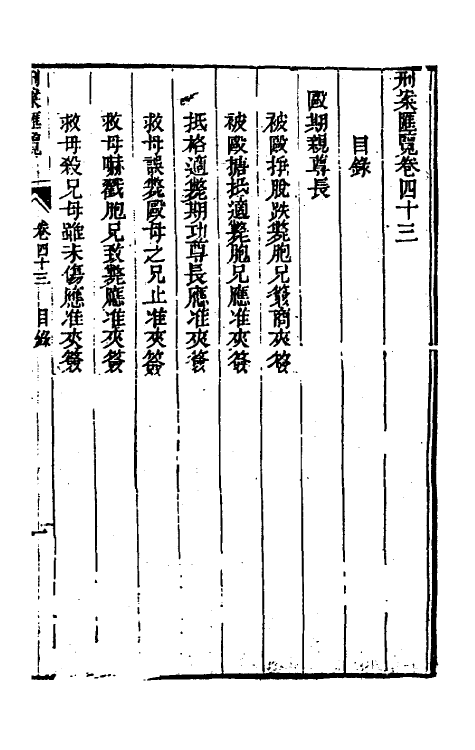 刑案匯覽卷四十三
目錄
毆期親尊長
被毆掙脫跌斃胞兄簽商夾簽
被毆搪抵適斃胞兄應准夾簽
抵格適斃期功尊長應准夾簽
救母誤斃毆母之兄止准夾簽
救母嚇戳胞兄致斃應准夾簽
救母殺兄母雖未傷應准夾簽
刑案匯覽 卷四十三 目錄 一